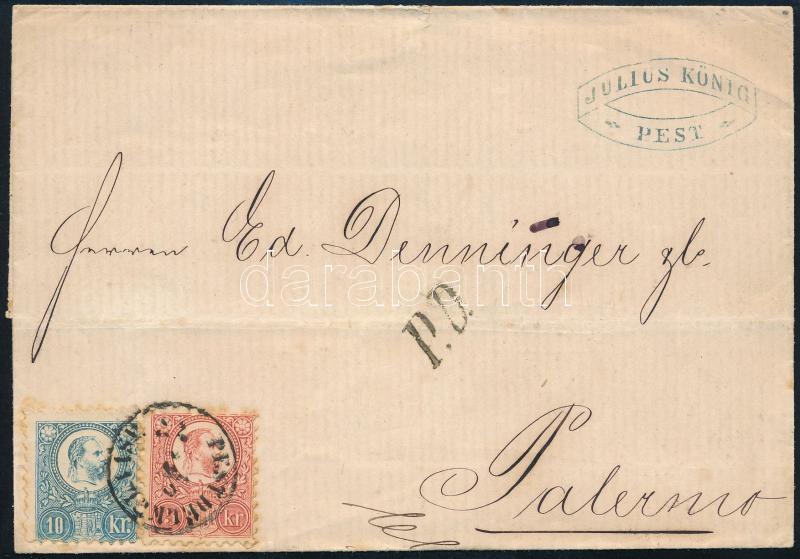 JULIUS KÖNIG
PEST
Herren Ed. Denninger
darabanth
P.D.
10 Kr.
kr
Palermo